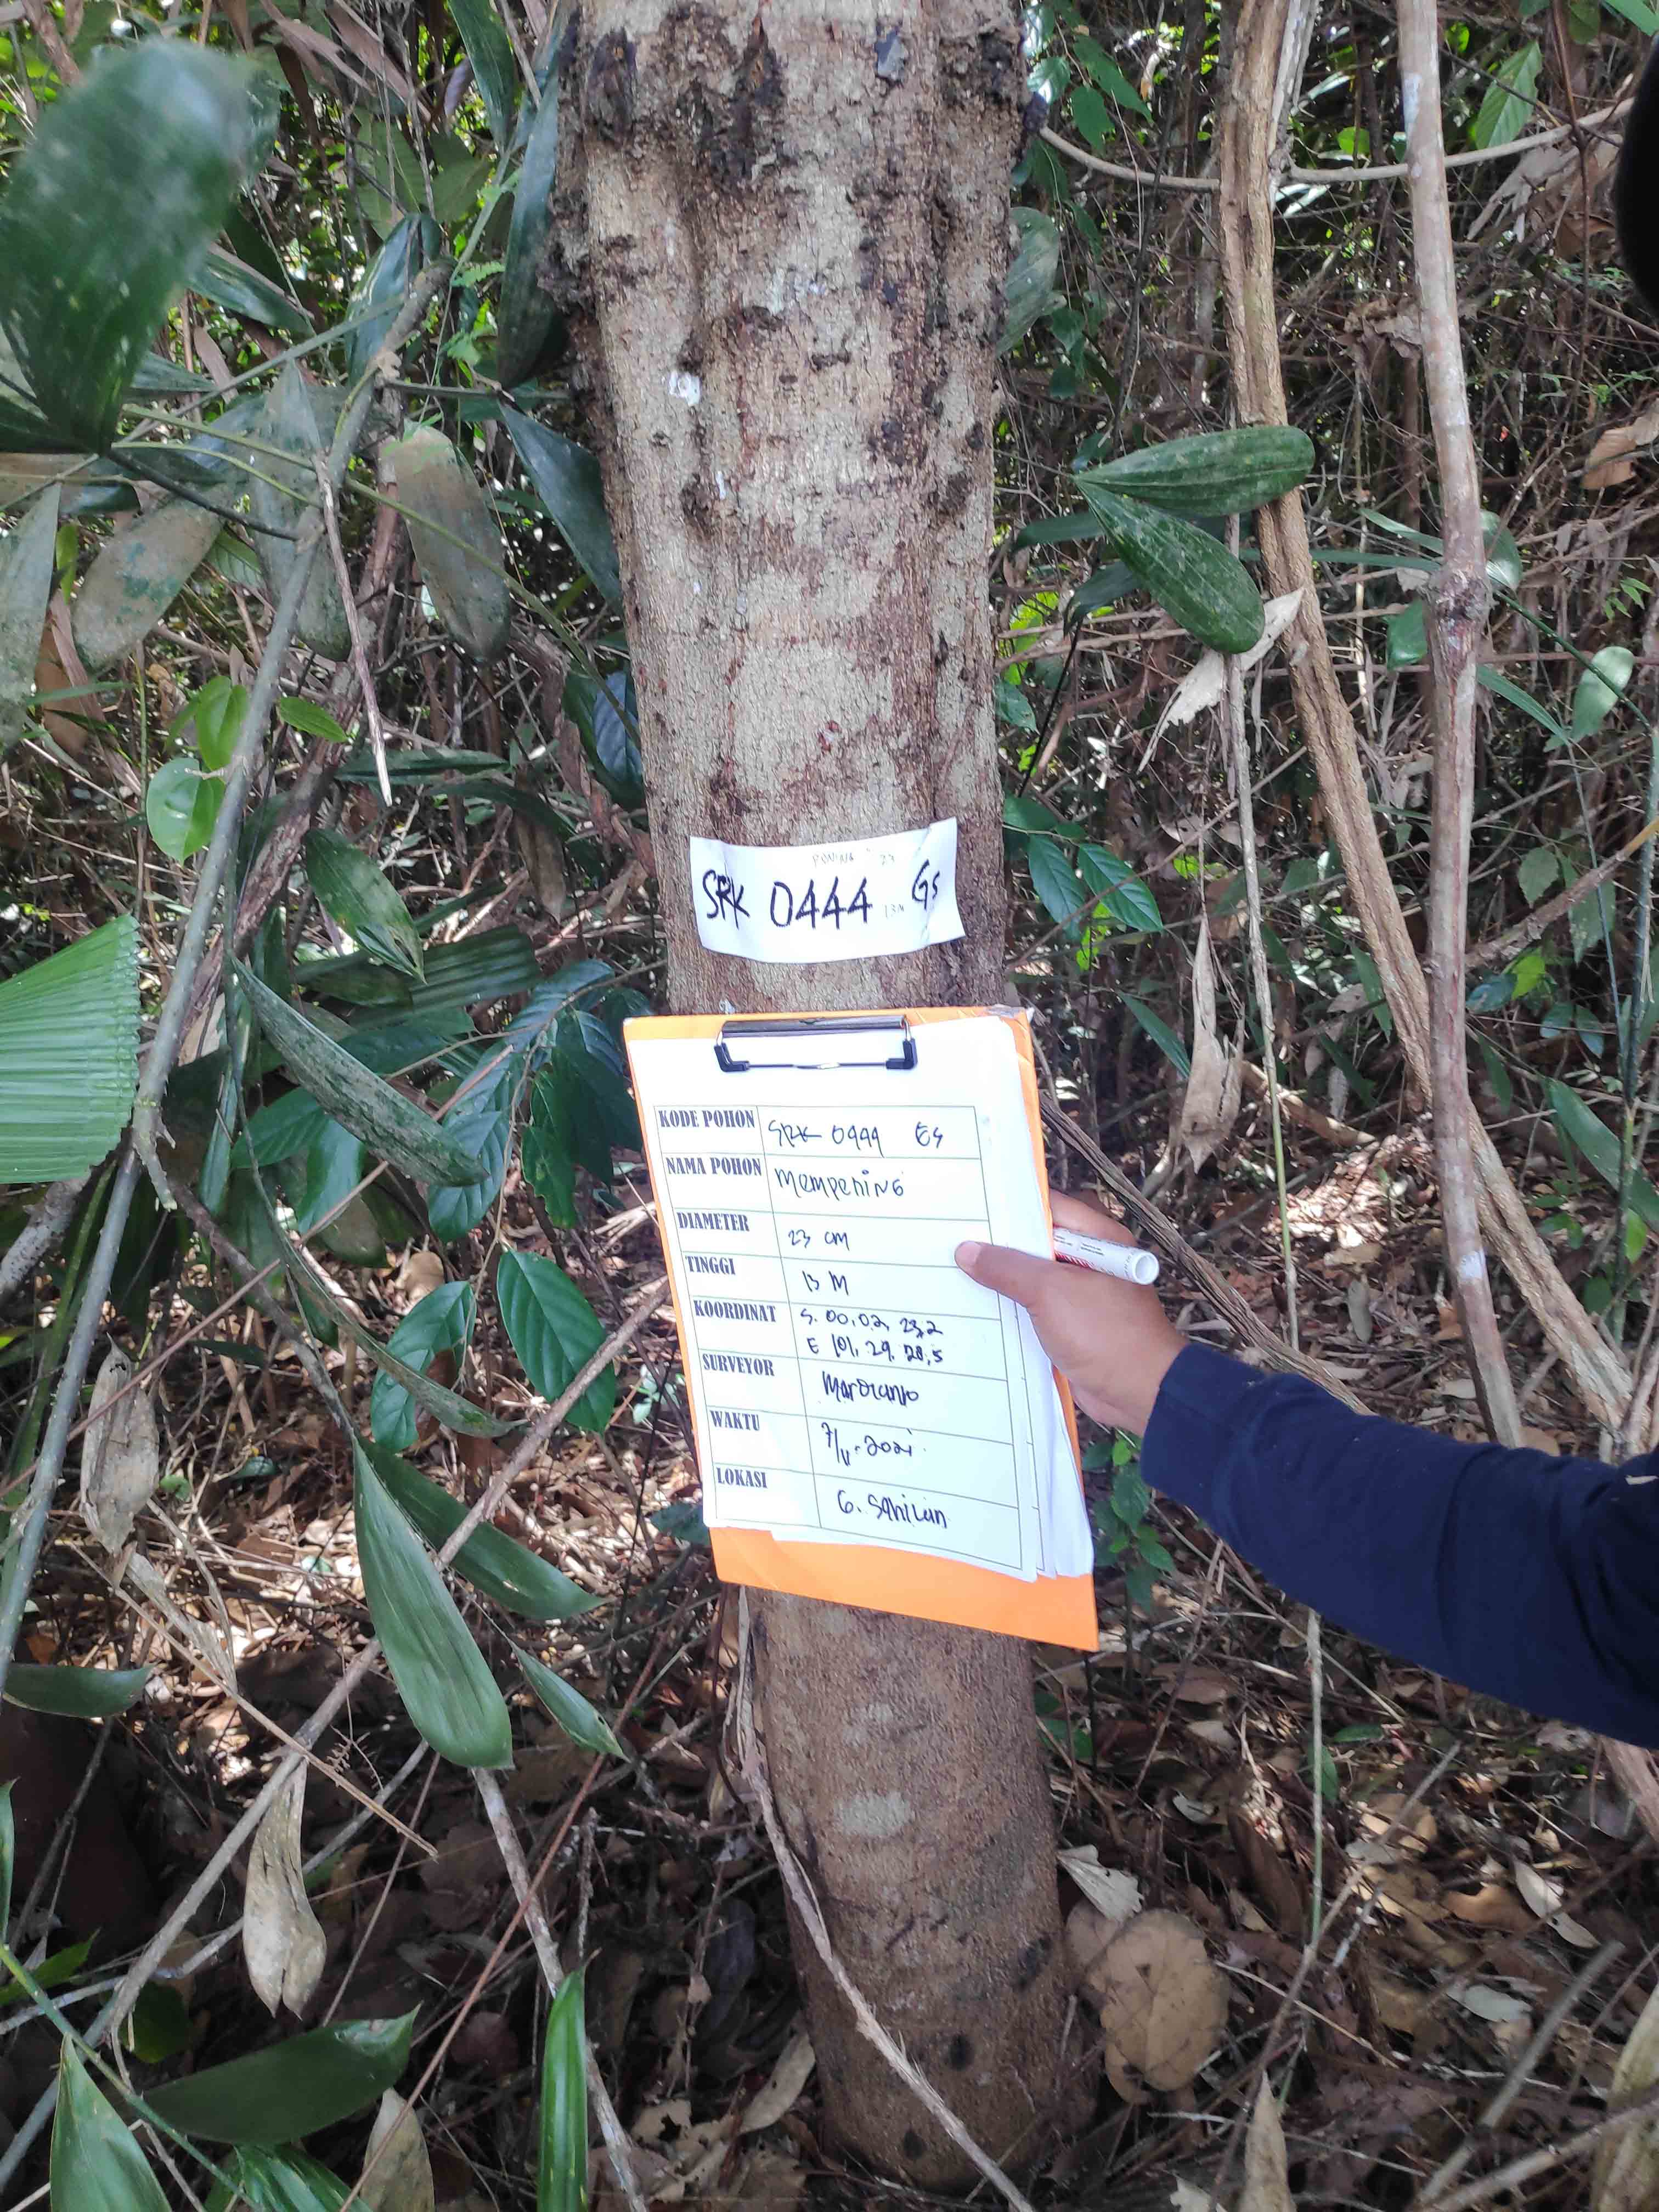 PONING 23
SRK 0444 13M GS
KODE POHON SRK 0444 GS
NAMA POHON mempening
DIAMETER 23 cm
TINGGI 13 M
KOORDINAT S. 00, 02, 23,2
E 101, 29, 28,5
SURVEYOR
WAKTU 7/V-2021
LOKASI G. Sahilan